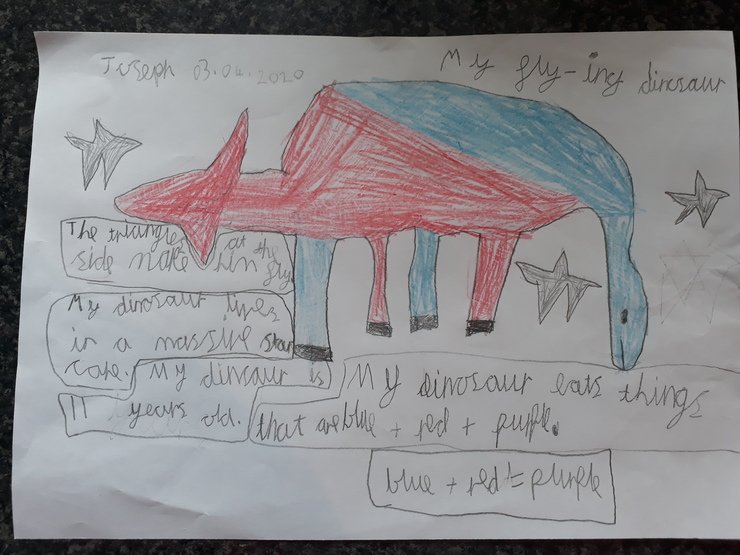 Joseph 03.04.2020
My fly-ing dinosaur
The triangles at the
side make him fly
My dinosaur lives
in a massive star
cave.
My dinsaur is
11 years old.
My dinosaur eats things
that are blue + red + purple.
blue + red = plurple